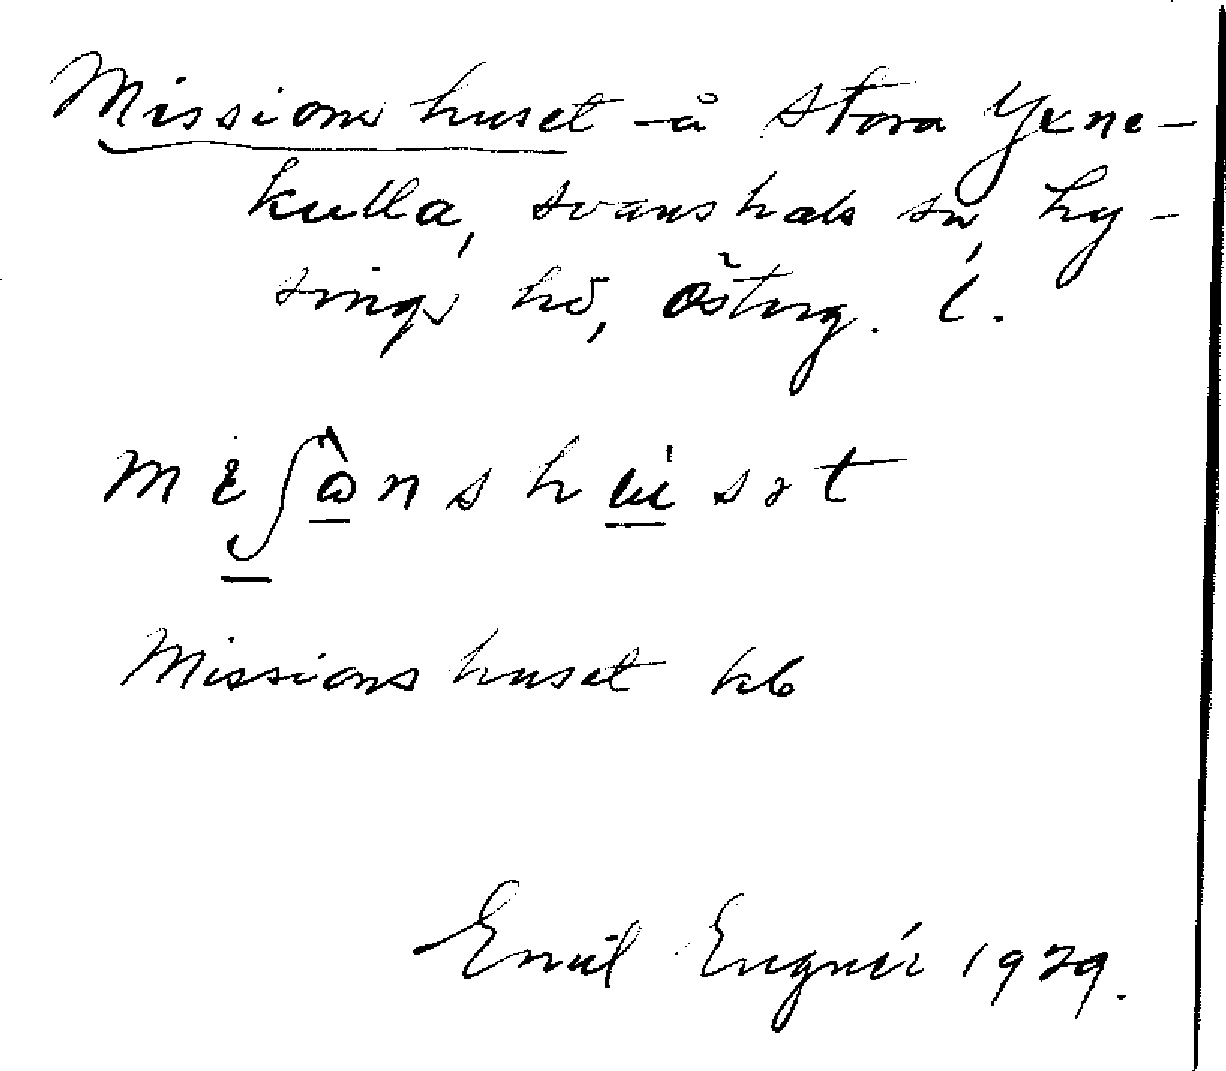 Missionshuset å Stora Yxne-
kulla, Svanshals sn, Ly-
sings hd, Österg. l.
Missionshuset kb
Emil Engnér 1929.